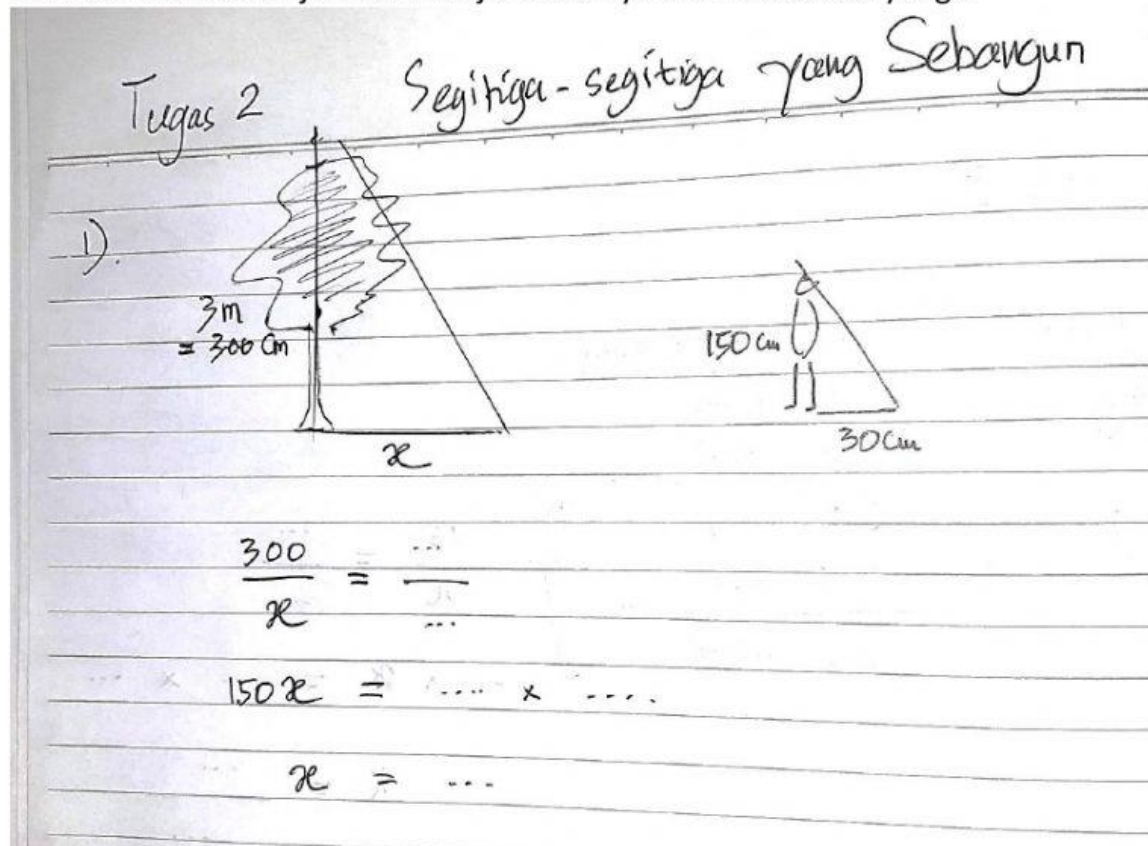 Tugas 2
Segitiga - segitiga yang Sebangun
1).
3m
= 300 Cm
x
150 Cm
30 Cm
300/x = .../...
150x = .... x ....
x = ...